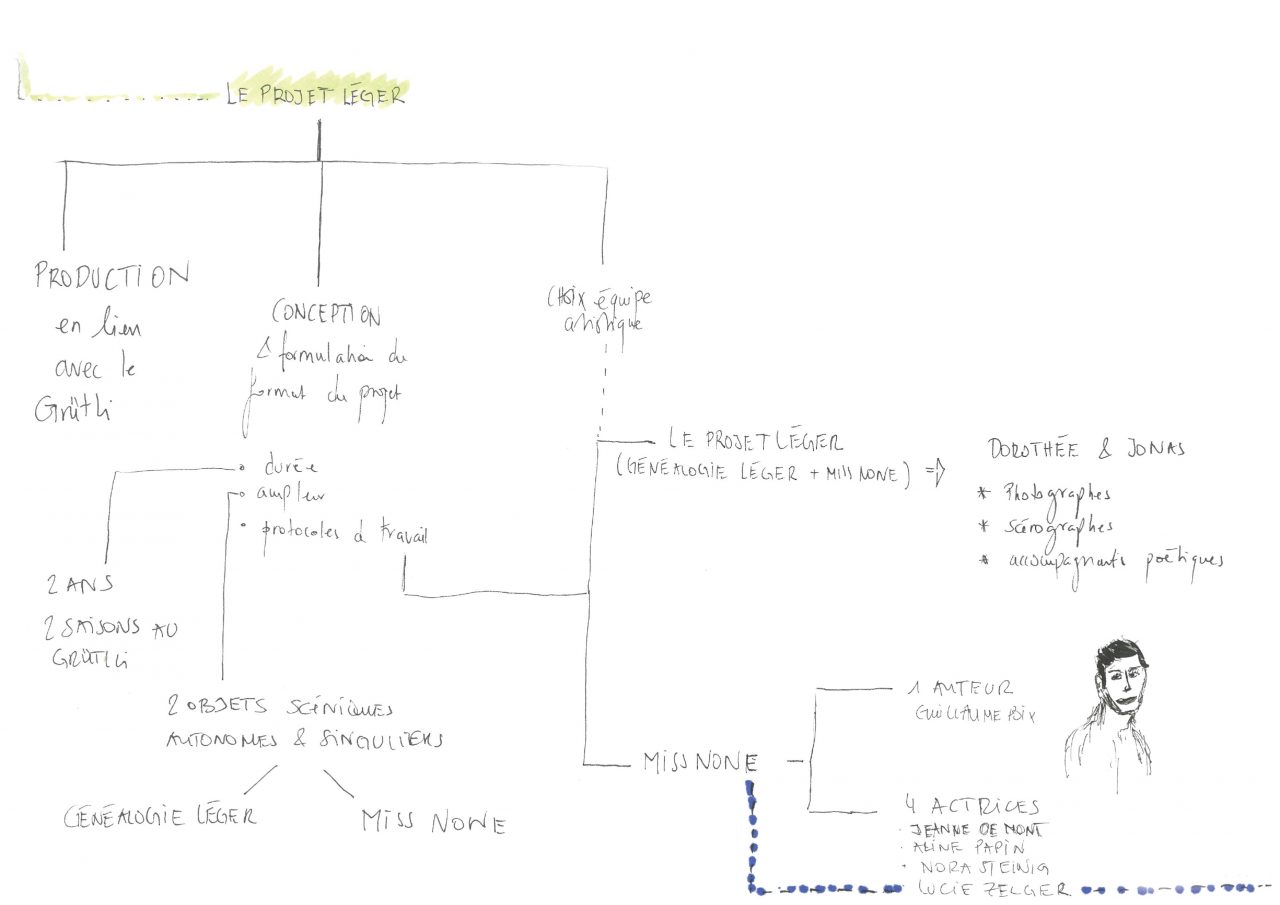 LE PROJET LÉGER
PRODUCTION
en lien
avec le
Grütli
CONCEPTION
formulation du
format du projet
• durée
• ampleur
• protocoles d travail
2 ANS
2 SAISONS AU
GRÜTLI
2 OBJETS SCÉNIQUES
AUTONOMES & SINGULIERS
GÉNÉALOGIE LÉGER
MISS NONE
CHOIX équipe
artistique
LE PROJET LÉGER
(GÉNÉALOGIE LÉGER + MISS NONE) ⇒
DOROTHÉE & JONAS
* Photographes
* Scénographes
* accompagnants poétiques
MISS NONE
1 AUTEUR
GUILLAUME POIX
4 ACTRICES
• JEANNE DE MONT
• ALINE PAPIN
• NORA STEINIG
LUCIE ZELGER